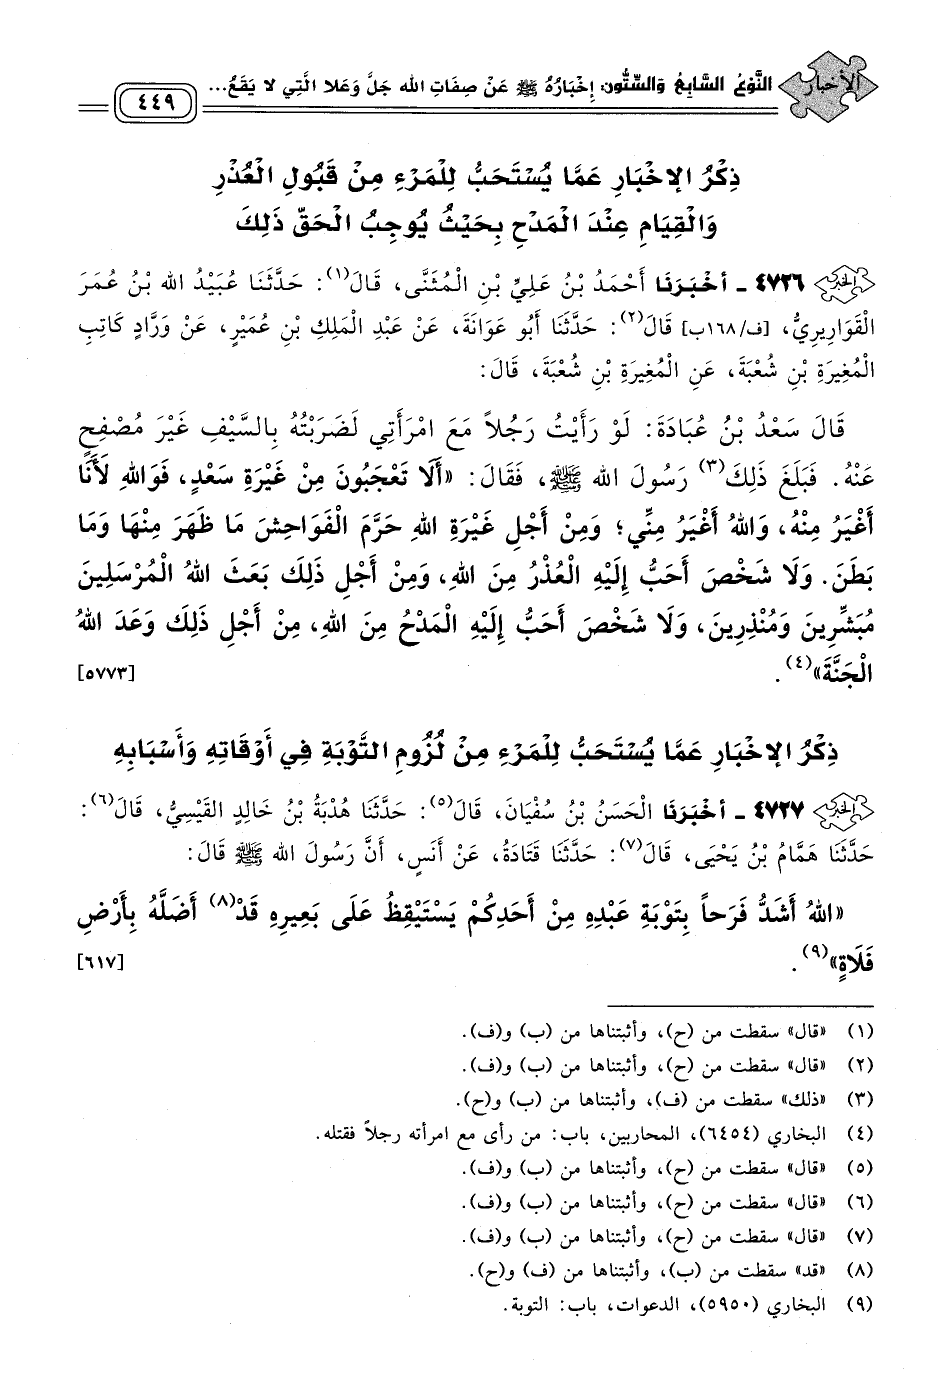 الأخبار النَّوْعُ السَّابِعُ وَالسِّتُّونَ: إِخْبَارُهُ ﷺ عَنْ صِفَاتِ اللهِ جَلَّ وَعَلا الَّتِي لا يَقَعُ... ٤٤٩
ذِكْرُ الإخْبَارِ عَمَّا يُسْتَحَبُّ لِلْمَرْءِ مِنْ قَبُولِ الْعُذْرِ
وَالْقِيَامِ عِنْدَ الْمَدْحِ بِحَيْثُ يُوجِبُ الْحَقّ ذَلِكَ
الخبر ٤٧٢٦ - أخْبَرَنَا أَحْمَدُ بْنُ عَلِيِّ بْنِ الْمُثَنَّى، قَالَ(١): حَدَّثَنَا عُبَيْدُ الله بْنُ عُمَرَ
الْقَوَارِيرِيُّ، [ف/١٦٨ب] قَالَ(٢): حَدَّثَنَا أَبُو عَوَانَةَ، عَنْ عَبْدِ الْمَلِكِ بْنِ عُمَيْرٍ، عَنْ وَرَّادٍ كَاتِبِ
الْمُغِيرَةِ بْنِ شُعْبَةَ، عَنِ الْمُغِيرَةِ بْنِ شُعْبَةَ، قَالَ:
قَالَ سَعْدُ بْنُ عُبَادَةَ: لَوْ رَأَيْتُ رَجُلاً مَعَ امْرَأَتِي لَضَرَبْتُهُ بِالسَّيْفِ غَيْرَ مُصْفِحٍ
عَنْهُ. فَبَلَغَ ذَلِكَ(٣) رَسُولَ الله ﷺ، فَقَالَ: «أَلَا تَعْجَبُونَ مِنْ غَيْرَةِ سَعْدٍ، فَوَاللهِ لَأَنَا
أَغْيَرُ مِنْهُ، وَاللهُ أَغْيَرُ مِنِّي؛ وَمِنْ أَجْلِ غَيْرَةِ اللهِ حَرَّمَ الْفَوَاحِشَ مَا ظَهَرَ مِنْهَا وَمَا
بَطَنَ. وَلَا شَخْصَ أَحَبُّ إِلَيْهِ الْعُذْرُ مِنَ اللهِ، وَمِنْ أَجْلِ ذَلِكَ بَعَثَ اللهُ الْمُرْسَلِينَ
مُبَشِّرِينَ وَمُنْذِرِينَ، وَلَا شَخْصَ أَحَبُّ إِلَيْهِ الْمَدْحُ مِنَ اللهِ، مِنْ أَجْلِ ذَلِكَ وَعَدَ اللهُ
الْجَنَّةَ»(٤). [٥٧٧٣]
ذِكْرُ الإخْبَارِ عَمَّا يُسْتَحَبُّ لِلْمَرْءِ مِنْ لُزُومِ التَّوْبَةِ فِي أَوْقَاتِهِ وَأَسْبَابِهِ
الخبر ٤٧٢٧ - أخْبَرَنَا الْحَسَنُ بْنُ سُفْيَانَ، قَالَ(٥): حَدَّثَنَا هُدْبَةُ بْنُ خَالِدٍ القَيْسِيُّ، قَالَ(٦):
حَدَّثَنَا هَمَّامُ بْنُ يَحْيَى، قَالَ(٧): حَدَّثَنَا قَتَادَةُ، عَنْ أَنَسٍ، أَنَّ رَسُولَ الله ﷺ قَالَ:
«اللهُ أَشَدُّ فَرَحاً بِتَوْبَةِ عَبْدِهِ مِنْ أَحَدِكُمْ يَسْتَيْقِظُ عَلَى بَعِيرِهِ قَدْ(٨) أَضَلَّهُ بِأَرْضِ
فَلَاةٍ»(٩). [٦١٧]
(١) «قال» سقطت من (ح)، وأثبتناها من (ب) و(ف).
(٢) «قال» سقطت من (ح)، وأثبتناها من (ب) و(ف).
(٣) «ذلك» سقطت من (ف)، وأثبتناها من (ب) و(ح).
(٤) البخاري (٦٤٥٤)، المحاربين، باب: من رأى مع امرأته رجلاً فقتله.
(٥) «قال» سقطت من (ح)، وأثبتناها من (ب) و(ف).
(٦) «قال» سقطت من (ح)، وأثبتناها من (ب) و(ف).
(٧) «قال» سقطت من (ح)، وأثبتناها من (ب) و(ف).
(٨) «قد» سقطت من (ب)، وأثبتناها من (ف) و(ح).
(٩) البخاري (٥٩٥٠)، الدعوات، باب: التوبة.